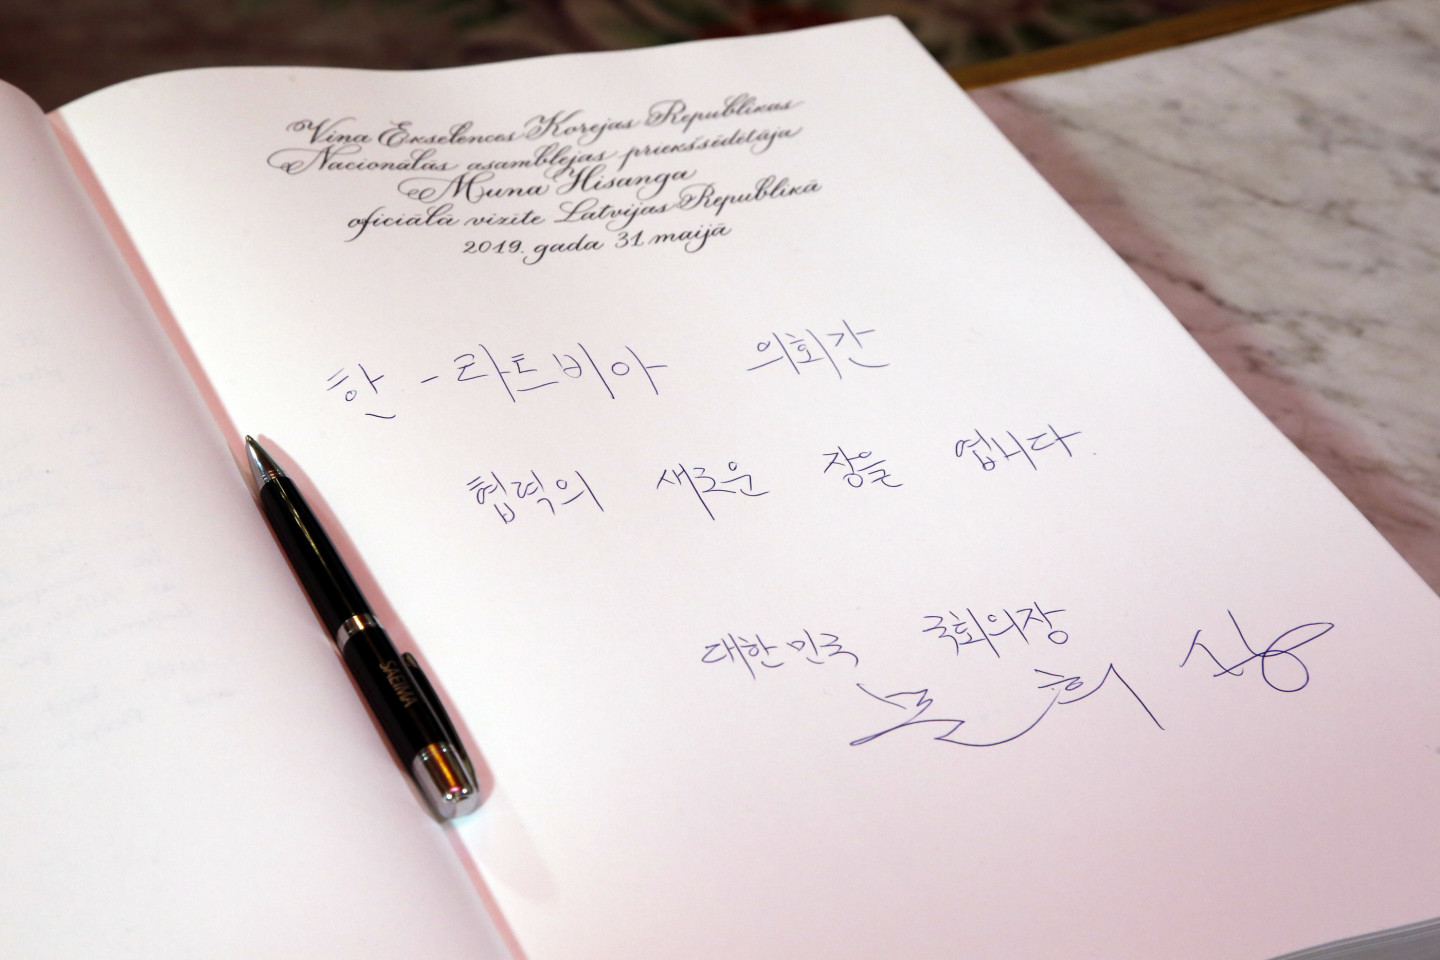 Viņa Ekselences Korejas Republikas
Nacionālās asamblejas priekšsēdētāja
Muna Hisanga
oficiālā vizīte Latvijas Republikā
2019. gada 31. maijā
한 - 라트비아 의회간
협력의 새로운 장을 엽니다.
대한민국 국회의장
문희상
SAEIMA